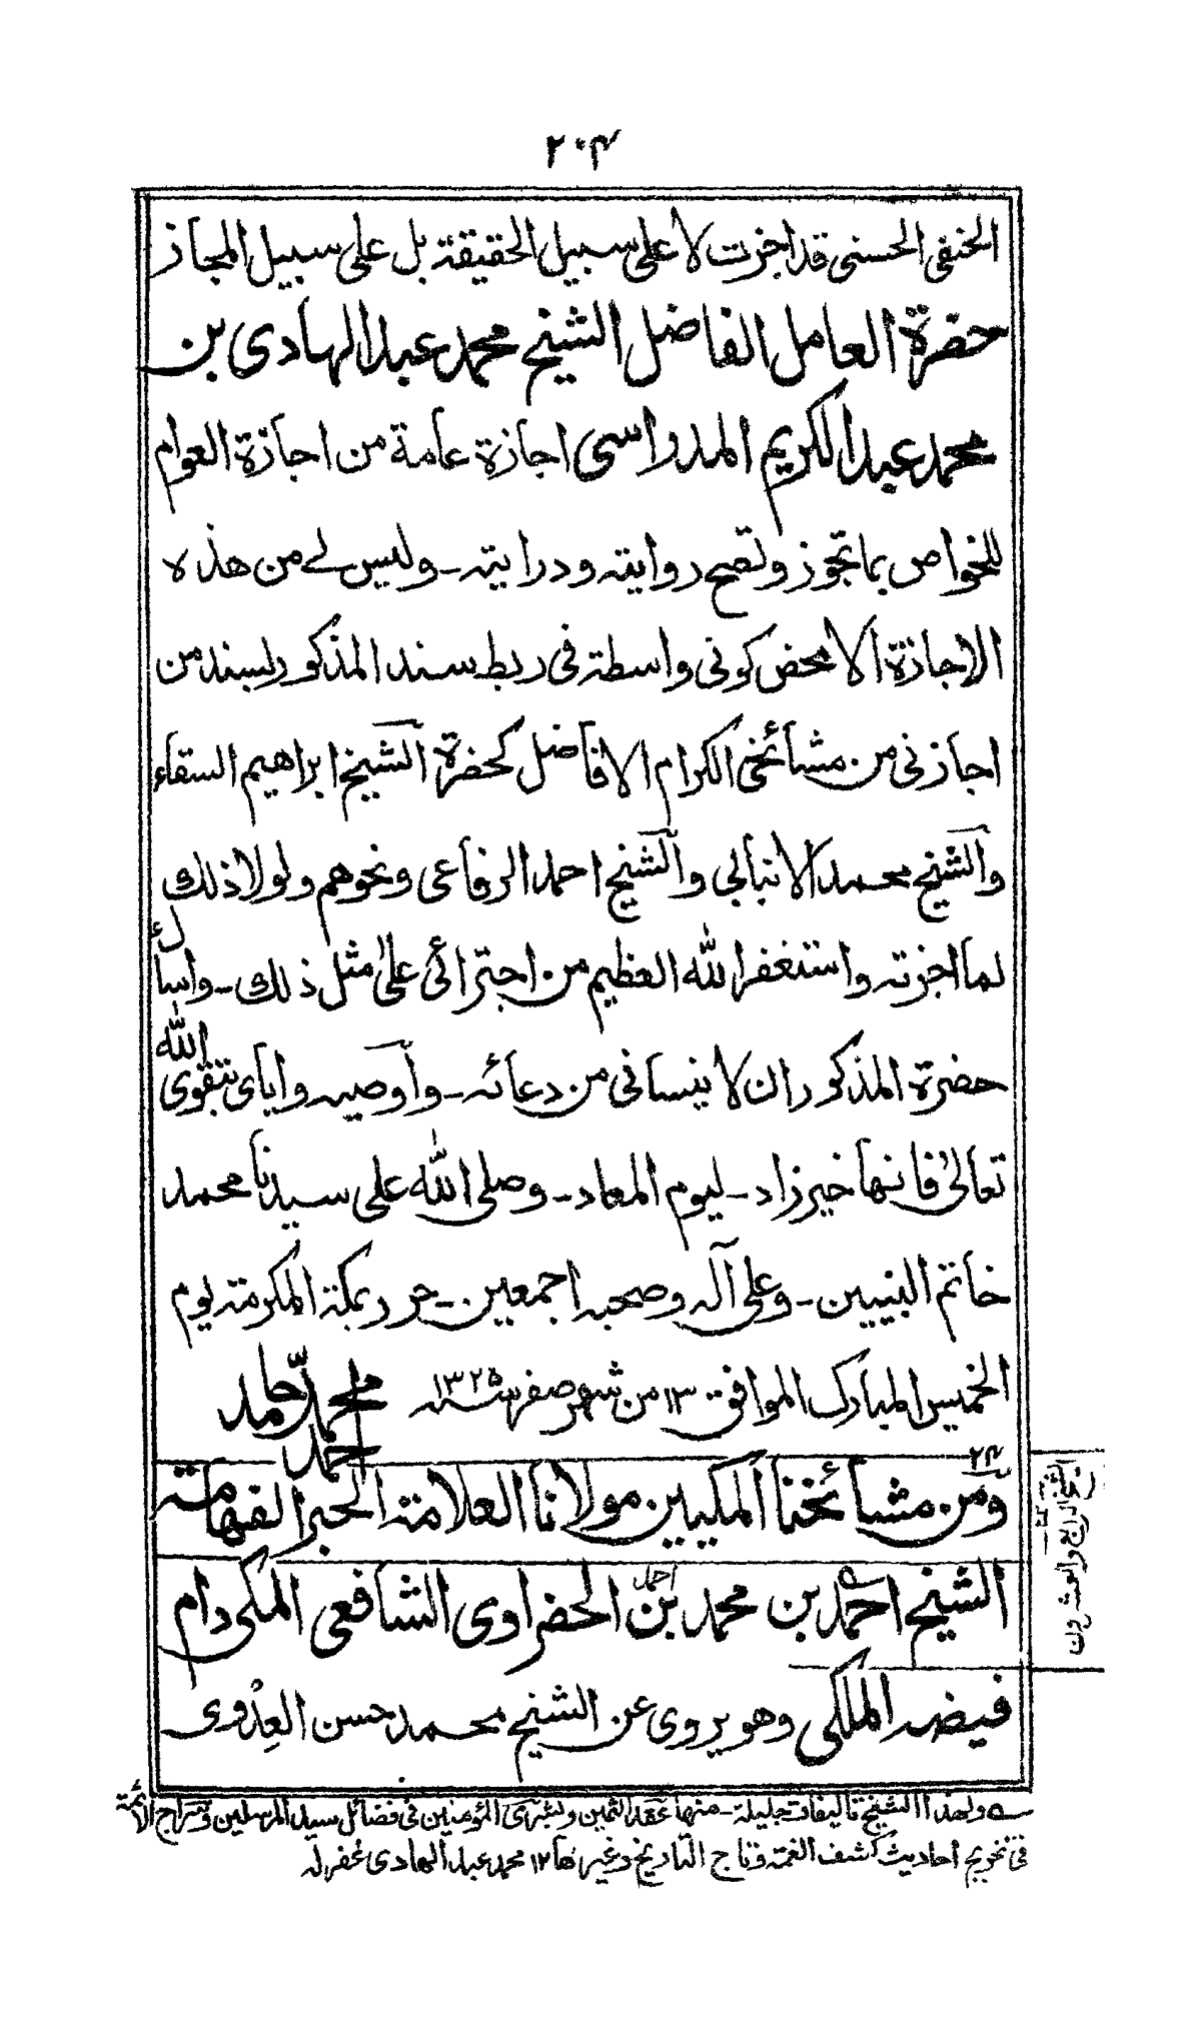 ۲۰۴
الحنفى الحسنى قد اجزت لا على سبيل الحقيقة بل على سبيل المجاز
حضرة العامل الفاضل الشيخ محمد عبد الهادى بن
محمد عبد الكريم المدراسى اجازة عامة من اجازة العوام
للخواص بما تجوز وتصح روايته ودرايته ـ وليس لے من هذه
الاجازة الا محض كونى واسطة فى ربط سند المذكور بسند من
اجازنى من مشائخى الكرام الافاضل كحضرة الشيخ ابراهيم السقاء
والشيخ محمد الانبابى والشيخ احمد الرفاعى ونحوهم ولولا ذلك
لما اجزته واستغفر الله العظيم من اجترائى على مثل ذلك ـ واسألك
حضرة المذكور ان لا ينسانى من دعائه ـ وأوصيه واياى بتقوى الله
تعالىٰ فانها خير زاد ـ ليوم المعاد ـ وصلى الله على سيدنا محمد
خاتم النبيين ـ وعلى آله وصحبه اجمعين ـ حرر بمكة المكرمة يوم
الخميس المبارك الموافق ۱۳ من شهر صفر سنة ۱۳۲۵ محمد حامد
احمد
۲۴
ومن مشائخنا المكيين مولانا العلامة الحبر الفهامة
الشيخ احمد بن محمد بن احمد الحضراوى الشافعى المكى دام
فيضه الملكى وهو يروى عن الشيخ محمد حسن العِدْوى
الرابع والعشرون
ے ولهذا الشيخ تاليفات جليلة ـ منها عقد الثمين وبشرى المؤمنين فى فضائل سيد المرسلين وسراج الائمة
فى تخريج احاديث كشف الغمة وتاج التاريخ وغيرها ۱۲ محمد عبد الهادى غفرله